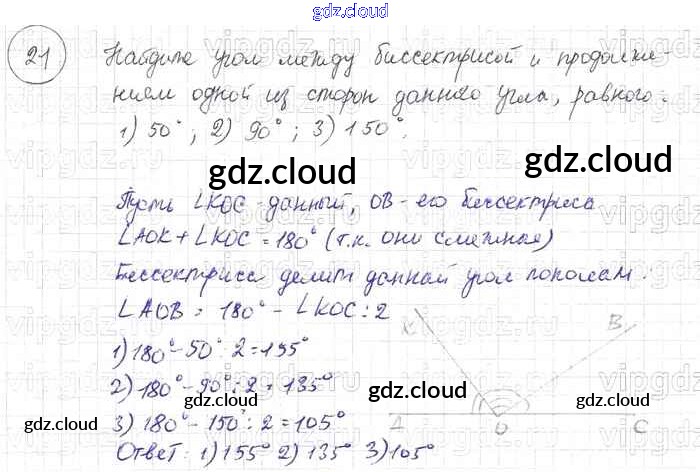 gdz.cloud
21 Найдите угол между биссектрисой и продолже-
нием одной из сторон данного угла, равного:
1) 50°; 2) 90°; 3) 150°.
gdz.cloud gdz.cloud
Пусть ∠KOC - данный, OB - его биссектриса
∠AOK + ∠KOC = 180° (т.к. они смежные)
Биссектриса делит данный угол пополам.
∠AOB = 180° - ∠KOC : 2
1) 180° - 50° : 2 = 155°
2) 180° - 90° : 2 = 135°
3) 180° - 150° : 2 = 105°
Ответ: 1) 155° 2) 135° 3) 105°
K B
A O C
gdz.cloud gdz.cloud
gdz.cloud gdz.cloud gdz.cloud
gdz.cloud
vipgdz.ru